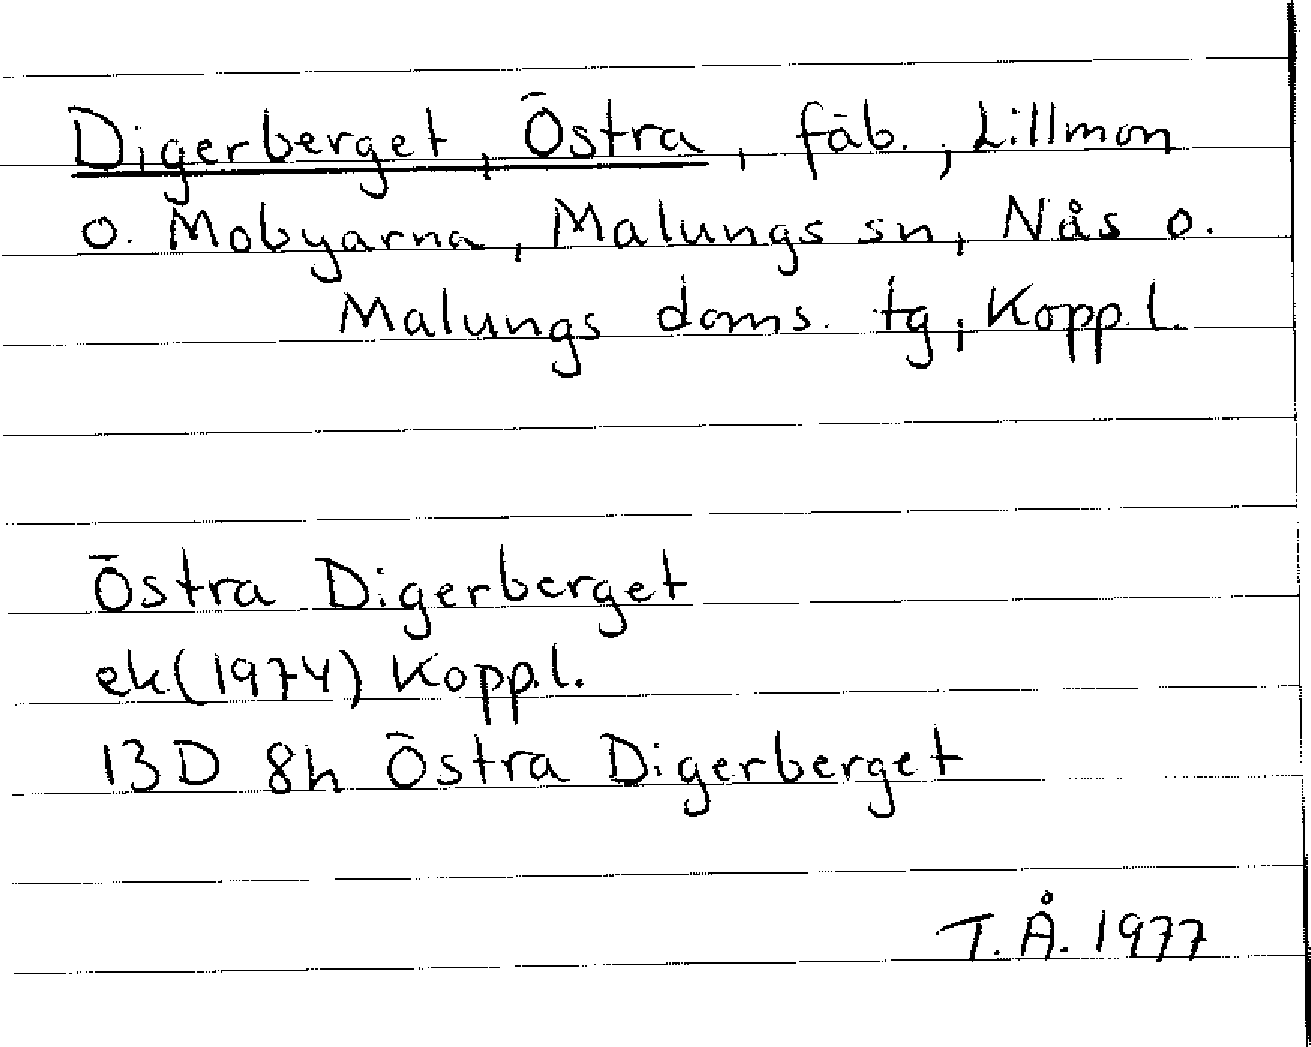 Digerberget, Östra, fäb., Lillmon
o. Mobyarna, Malungs sn, Nås o.
Malungs doms. tg, Kopp.l.
Östra Digerberget
ek(1974) Kopp.l.
13D 8h Östra Digerberget
T.Å. 1977